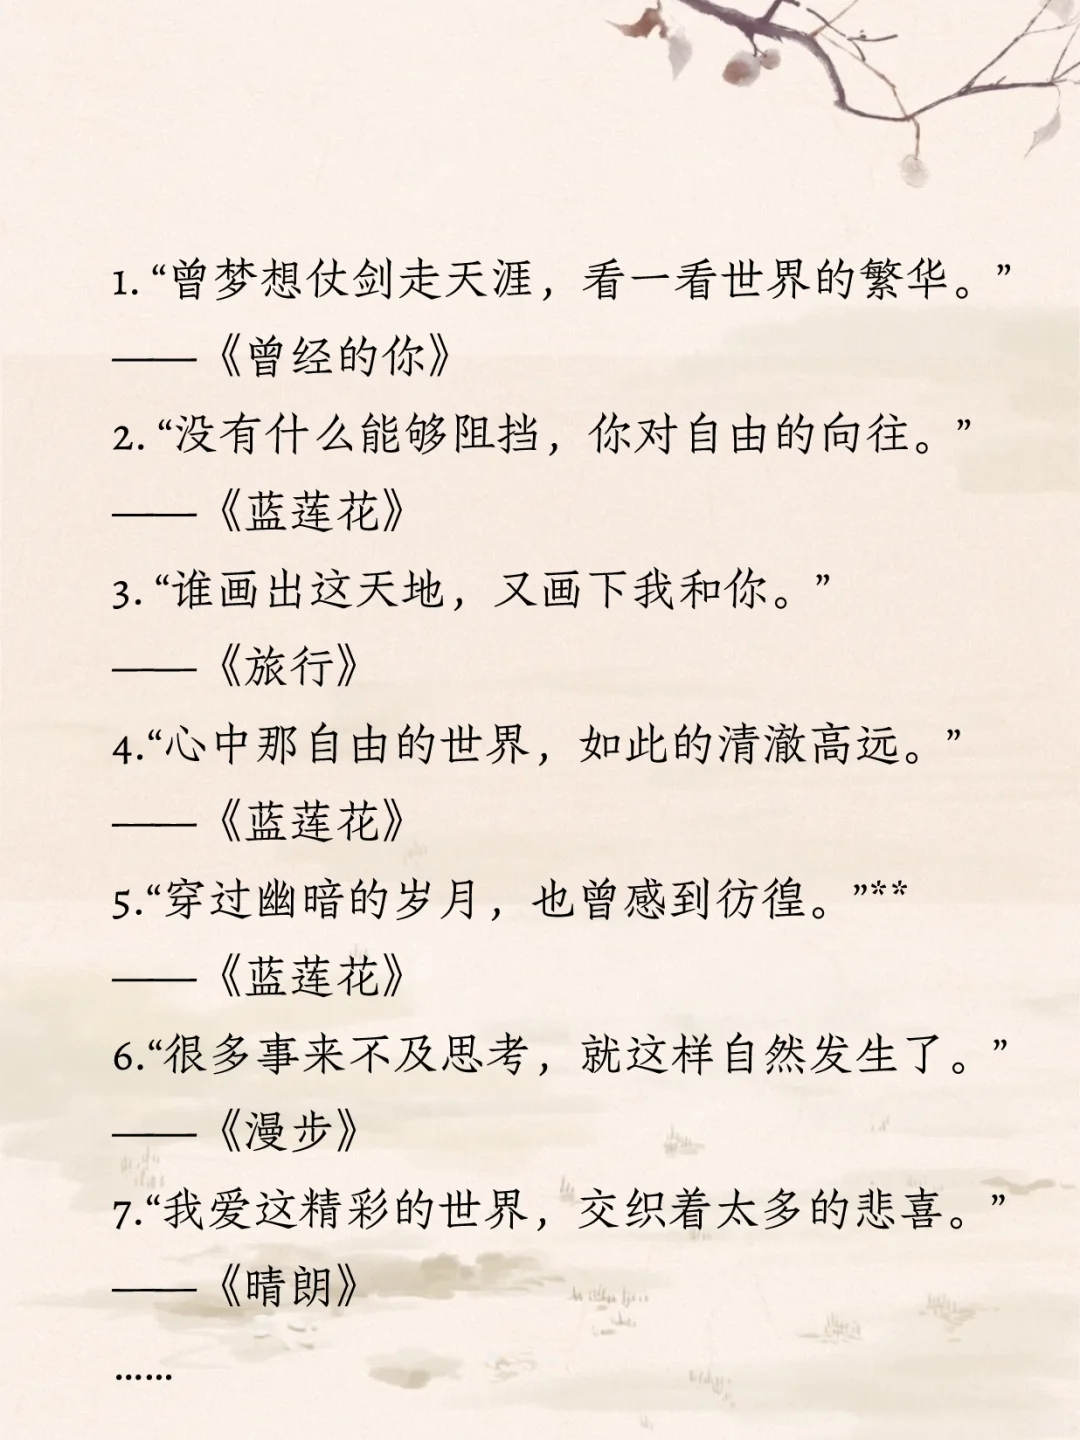 1. “曾梦想仗剑走天涯，看一看世界的繁华。”
——《曾经的你》
2. “没有什么能够阻挡，你对自由的向往。”
——《蓝莲花》
3. “谁画出这天地，又画下我和你。”
——《旅行》
4.“心中那自由的世界，如此的清澈高远。”
——《蓝莲花》
5.“穿过幽暗的岁月，也曾感到彷徨。”**
——《蓝莲花》
6.“很多事来不及思考，就这样自然发生了。”
——《漫步》
7.“我爱这精彩的世界，交织着太多的悲喜。”
——《晴朗》
……